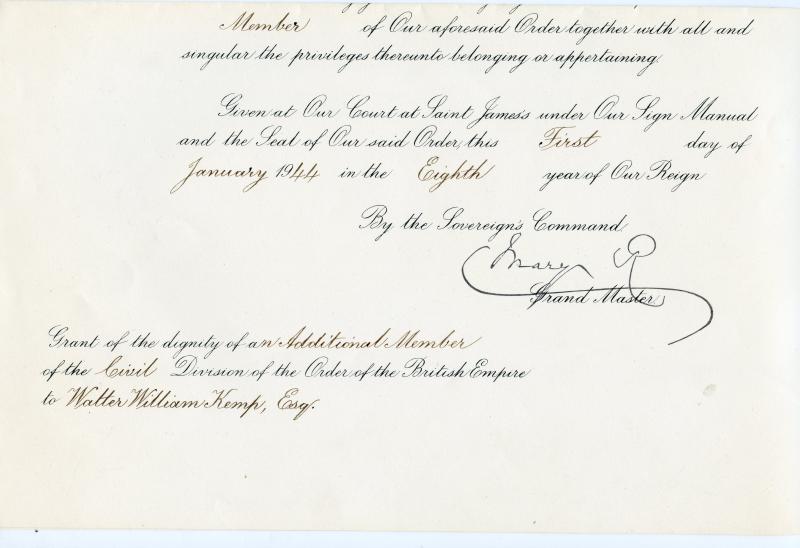 Member of Our aforesaid Order together with all and
singular the privileges thereunto belonging or appertaining.
Given at Our Court at Saint James's under Our Sign Manual
and the Seal of Our said Order, this First day of
January 1944 in the Eighth year of Our Reign
By the Sovereign's Command
Mary R
Grand Master
Grant of the dignity of an Additional Member
of the Civil Division of the Order of the British Empire
to Walter William Kemp, Esq.